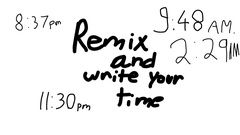 8:37pm
9:48 AM.
Remix
2:29AM
and
write your
11:30pm
time